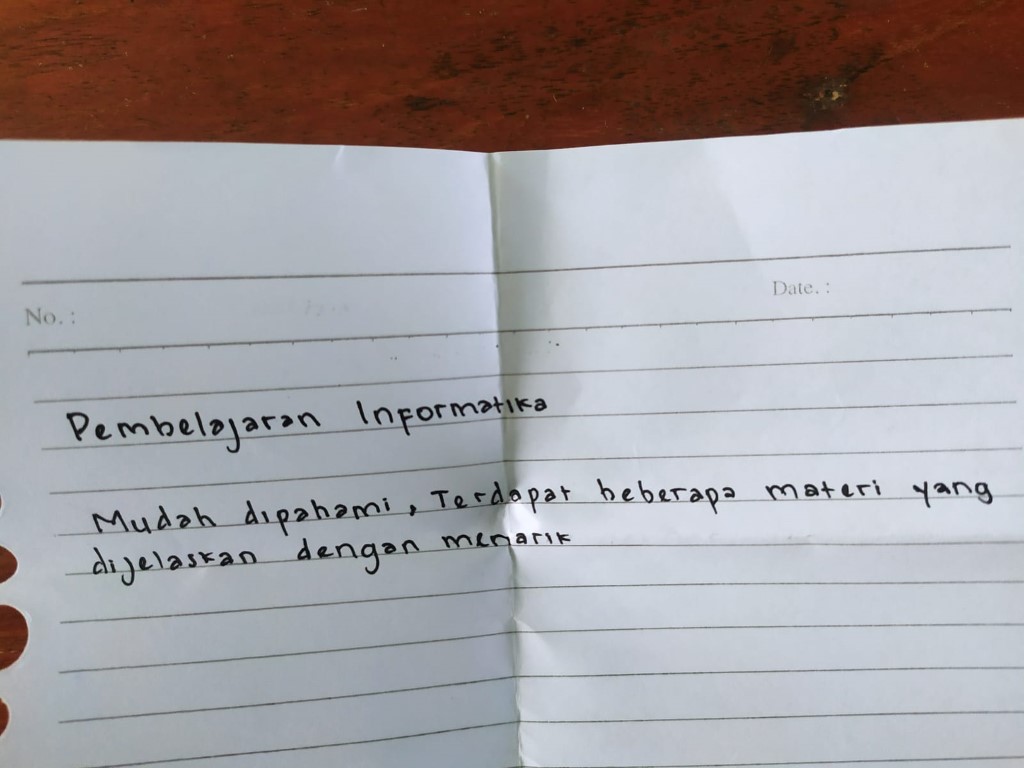 No. :
Date. :
Pembelajaran Informatika
Mudah dipahami, Terdapat beberapa materi yang
dijelaskan dengan menarik